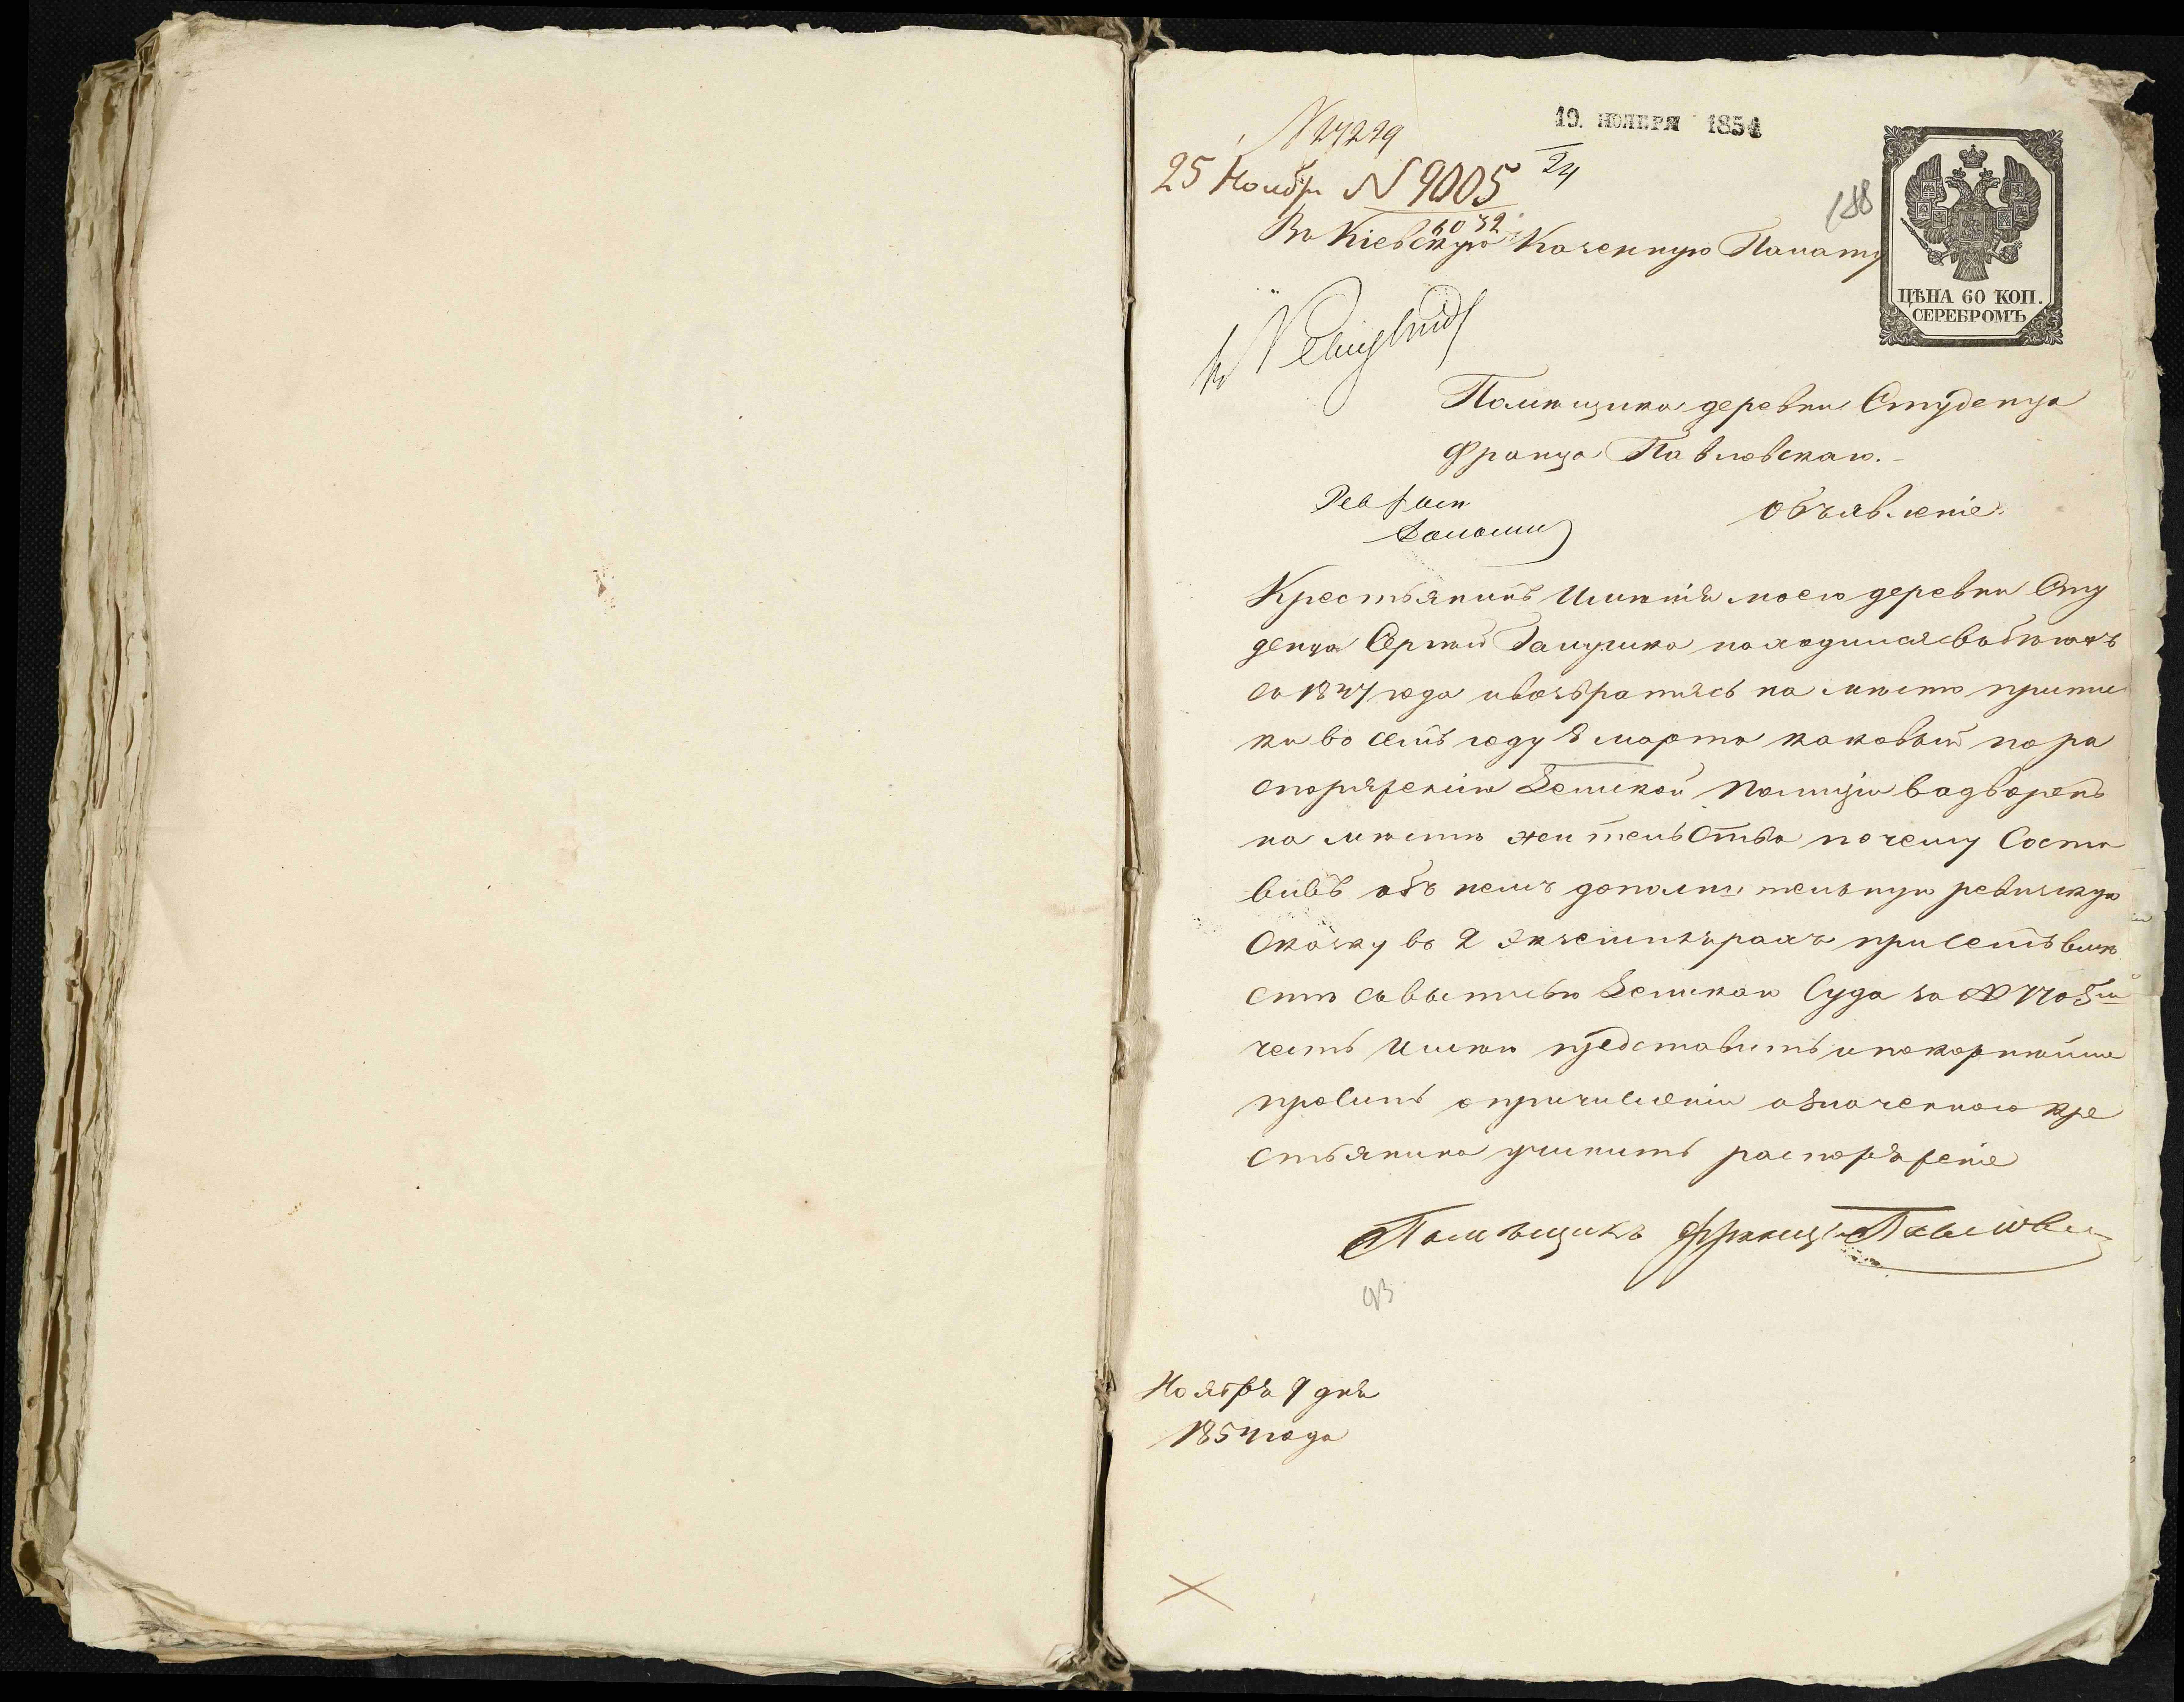 19. НОЯБРЯ 1854
N 27229
24
25 Ноябр N 9005
188
6032
Въ Кіевскую Казенную Палату
ЦѢНА 60 КОП.
СЕРЕБРОМЪ
Помѣщика деревни Студенца
Франца Павловскаго.-
объявленіе.
Крестьянинъ Имѣнія моего деревни Сту
денца Сергѣй находился въ бѣгахъ
съ 1847 года и возвратясь на мѣсто припис
ки во семъ году 8 марта каковый по ра
споряженію Земской Полиціи водворенъ
на мѣстѣ жительства почему Соста
вивъ объ немъ дополнительную ревизскую
Сказку въ 2 экземплярахъ при семъ вмѣ
стѣ съ Земскаго Суда за №
честь Имѣю представить и покорнѣйше
просить о причисленіи означеннаго кре
стьянина учинить распоряженіе
Помѣщикъ Францъ Павловскій
Ноября 9 дня
1854 года